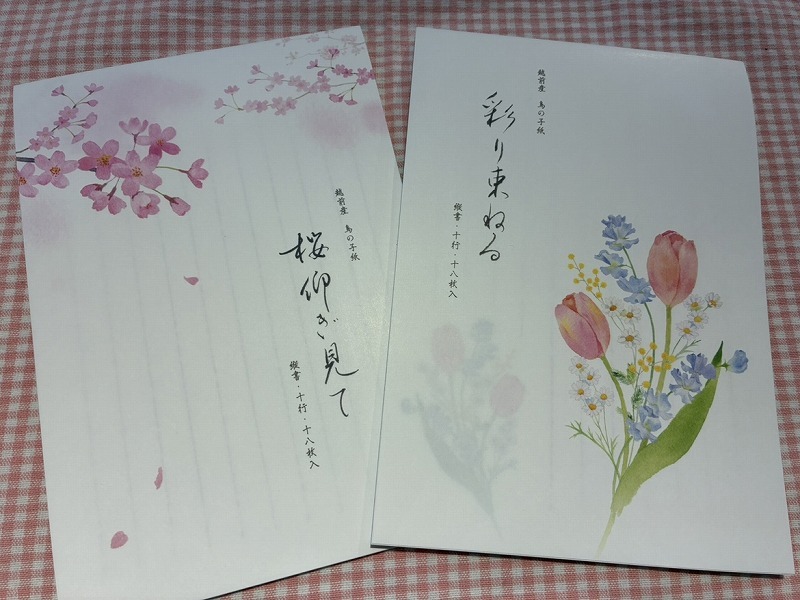 越前産 鳥の子紙
桜仰ぎ見て
縦書・十行・十八枚入
越前産 鳥の子紙
彩り束ねる
縦書・十行・十八枚入